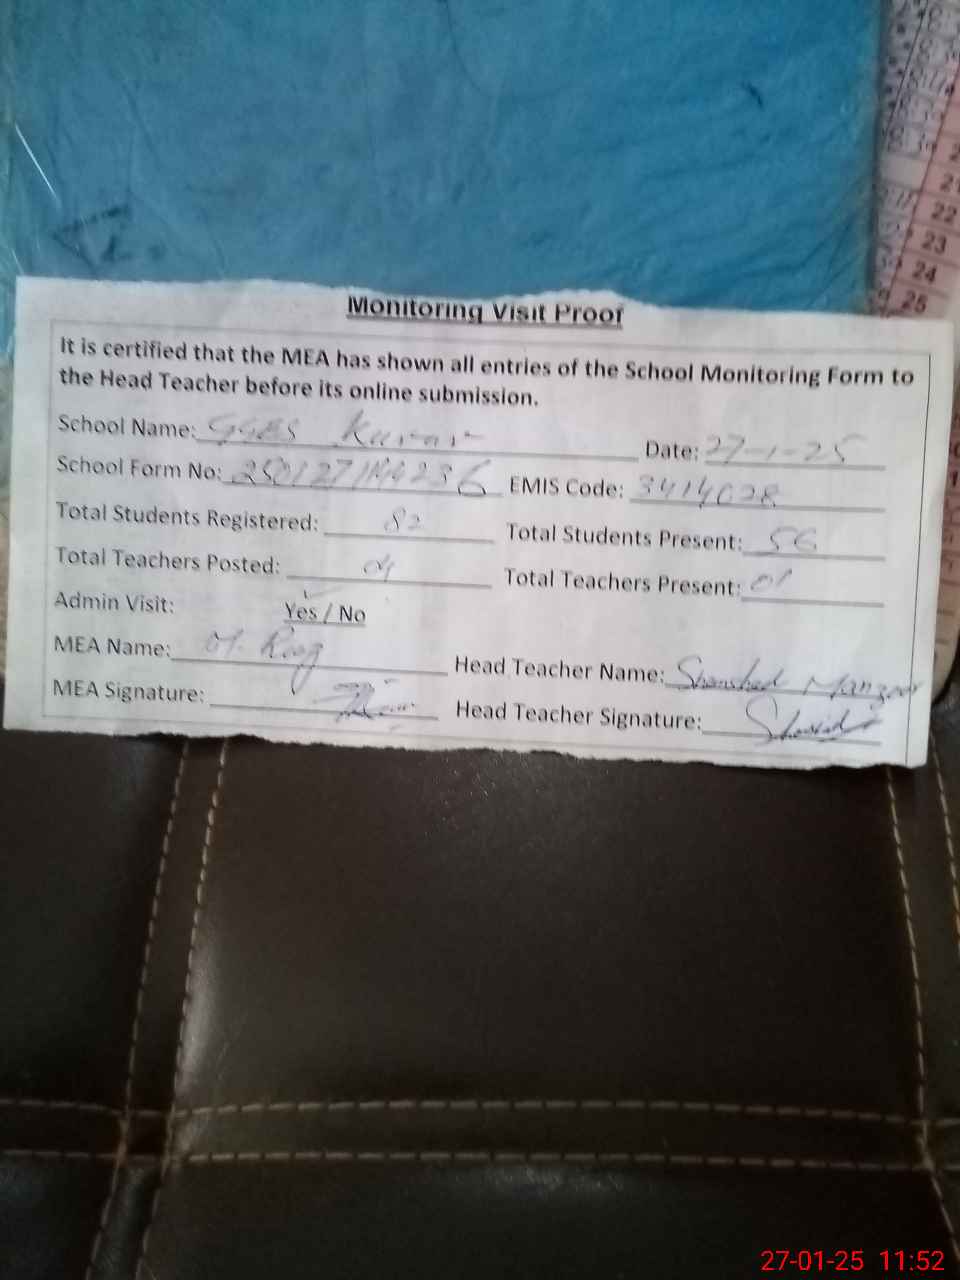 Monitoring Visit Proof
It is certified that the MEA has shown all entries of the School Monitoring Form to
the Head Teacher before its online submission.
School Name: GGES Date: 27-1-25
School Form No: EMIS Code:
Total Students Registered: 82 Total Students Present: 56
Total Teachers Posted: 04 Total Teachers Present: 01
Admin Visit: Yes / No
MEA Name: M.
Head Teacher Name: Manzoor
MEA Signature:
Head Teacher Signature:
21
22
23
24
25
27-01-25 11:52